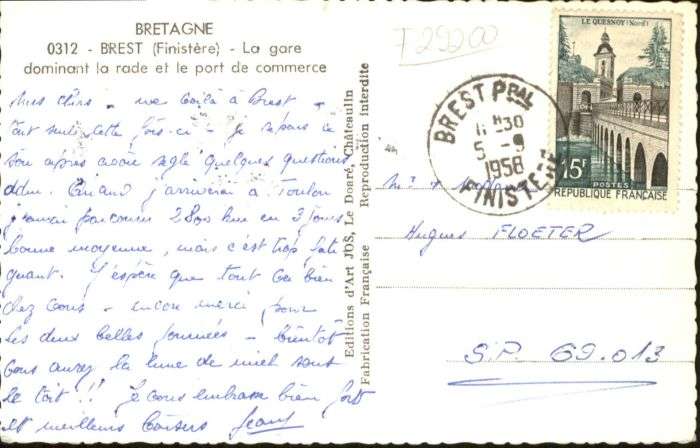 BRETAGNE
0312 - BREST (Finistère) - La gare
dominant la rade et le port de commerce
Mes chéris - me voilà à Brest -
tout seul cette fois-ci - Je repars ce
soir après avoir réglé quelques questions
ddm. Quand j'arriverai à Toulon
j'aurai parcouru 2800 km en 3 jours
bonne moyenne, mais c'est trop fati
guant. J'espère que tout va bien
chez vous - encore merci pour
les deux belles journées - bientôt
vous aurez la lune de miel sous
le toit !! Je vous embrasse bien fort
et meilleurs baisers
Editions d'Art JOS, Le Doaré, Châteaulin
Fabrication Française Reproduction interdite
T29200
BREST PPAL
11H30
5 - 9
1958
FINISTERE
LE QUESNOY (Nord)
15F
POSTES
REPUBLIQUE FRANÇAISE
Hugues FLOETER
S.P. 69.013